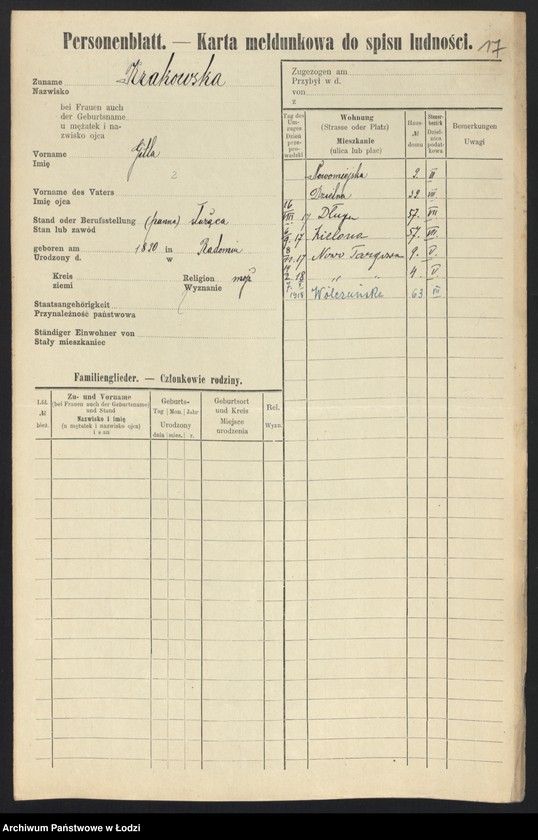 Personenblatt. — Karta meldunkowa do spisu ludności.
17
Zuname
Nazwisko
Krakowska
bei Frauen auch
der Geburtsname
u mężatek i na-
zwisko ojca
Vorname
Imię
Gitla
2
Vorname des Vaters
Imię ojca
Stand oder Berufsstellung (panna)
Stan lub zawód
geboren am 18 in Radomiu
Urodzony d. w
Kreis
ziemi
Religion mojż
Wyznanie
Staatsangehörigkeit
Przynależność państwowa
Ständiger Einwohner von
Stały mieszkaniec
Familienglieder. — Członkowie rodziny.
Lfd. № bież.
Zu- und Vorname
(bei Frauen auch der Geburtsname)
und Stand
Nazwisko i imię
(u mężatek i nazwisko ojca)
i stan
Geburts-
Tag | Mon. | Jahr
Urodzony
dnia | mies. | r.
Geburtsort
und Kreis
Miejsce
urodzenia
Rel.
Wyzn.
Zugezogen am
Przybył w d.
von
z
Tag des Um-zuges
Dzień prze-pro-wadzki
Wohnung
(Strasse oder Platz)
Mieszkanie
(ulica lub plac)
Haus-
№
domu
Steuer-bezirk
Dziel-nica podat-kowa
Bemerkungen
Uwagi
Nowomiejska 2. II
Dzielna 22. III
16 VIII 17 Długa 57. VII
9. 17 Zielona 57. VII
17 Nowo Targowa 9. V.
2. 18 " " 4. V.
1918 Wólczańska 63 VII
Archiwum Państwowe w Łodzi